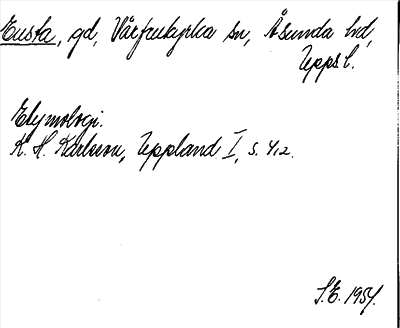 Eusta, gd, Vårfrukyrka sn, Åsunda hd,
Upps l.
Etymologi.
K. H. Karlsson, Uppland I, s. 412.
S.E. 1954.